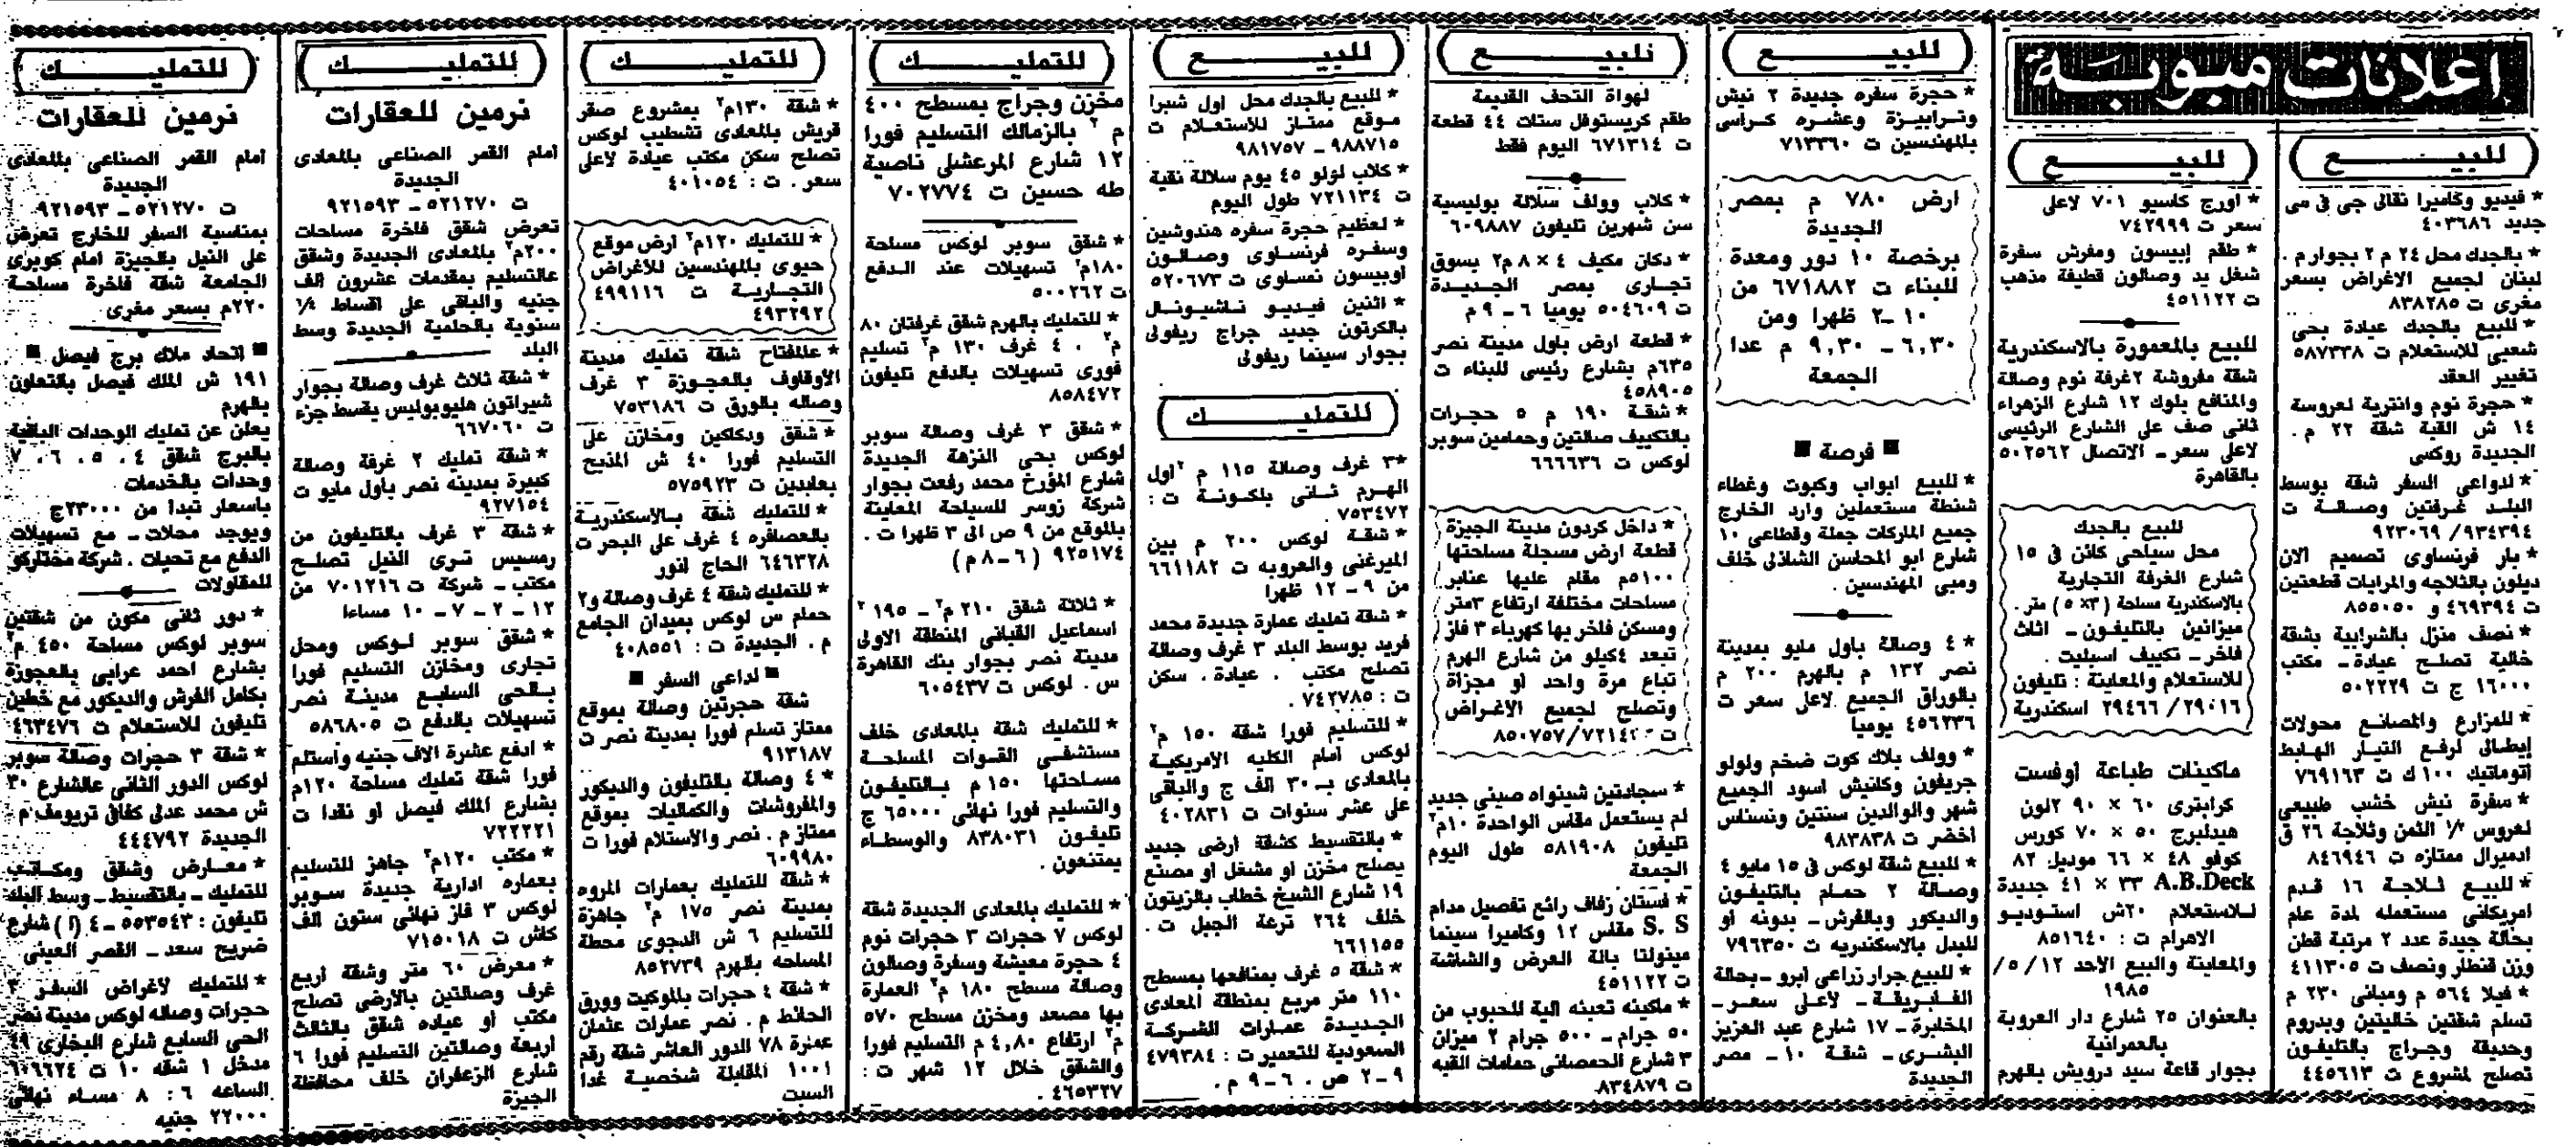 اعلانات مبوبة
للبيـــــع
* فيديو وكاميرا نقالى جى فى سى
جديد ٤٠٣٦٨٦
* بالجدك محل ٢٤ م ٢ بجوار م .
لبنان لجميع الاغراض بسعر
مغرى ت ٨٣٨٢٨٥
* للبيع بالجدك عيادة بحى
شعبى للاستعلام ت ٥٨٧٣٣٨
تغيير العقد
* حجرة نوم وانترية لعروسة
١٤ ش القبة شقة ٢٢ م .
الجديدة روكسى
* لدواعى السفر شقة بوسط
البلد غرفتين وصالة ت
٩٣٤٣٩٤ / ٩٢٣٠٦٩
* بار فرنساوى تصميم الان
ديلون بالثلاجه والمرايات قطعتين
ت ٤٦٩٣٩٤ و ٨٥٥٠٥٠
* نصف منزل بالشرابية بشقة
خالية تصلح عيادة ـ مكتب
١٦٠٠٠ ج ت ٥٠٢٢٢٩
* للمزارع والمصانع محولات
إيطالى لرفع التيار الهابط
أتوماتيك ١٠٠ ك ت ٧٦٩١٦٣
* سفرة نيش خشب طبيعى
لعروس ½ الثمن وثلاجة ٢٦ ق
ادميرال ممتازه ت ٨٤٦٩٤٦
* للبيع ثلاجة ١٦ قدم
امريكانى مستعمله لمدة عام
بحالة جيدة عدد ٢ مرتبة قطن
وزن قنطار ونصف ت ٤١١٣٠٥
* فيلا ٥٦٤ م ومبانى ٢٣٠ م
تسلم شقتين خاليتين وبدروم
وحديقة وجراج بالتليفون
تصلح لمشروع ت ٤٤٥٦١٣
للبيـــــع
* اورج كاسيو ٧٠١ لاعلى
سعر ت ٧٤٢٩٩٩
* طقم إبيسون ومفرش سفرة
شغل يد وصالون قطيفة مذهب
ت ٤٥١١٢٢
للبيع بالمعمورة بالاسكندرية
شقة مفروشة ٢ غرفة نوم وصالة
والمنافع بلوك ١٢ شارع الزهراء
ثانى صف على الشارع الرئيسى
لاعلى سعر ـ الاتصال ٥٠٢٥٦٢
بالقاهرة
للبيع بالجدك
محل سياحى كائن فى ١٥
شارع الغرفة التجارية
بالاسكندرية مساحة ( ٣ × ٥ ) متر .
ميزانين بالتليفون ـ اثاث
فاخر ـ تكييف اسبليت .
للاستعلام والمعاينة : تليفون
٢٩٠١٦ / ٢٩٤٦٦ اسكندرية
ماكينات طباعة أوفست
كرابترى ٦٠ × ٩٠ ٢لون
هيدلبرج ٥٠ × ٧٠ كورس
كوفو ٤٨ × ٦٦ موديل ٨٢
A.B.Deck ٣٣ × ٤١ جديدة
للاستعلام ٢٠ش استوديو
الاهرام ت : ٨٥١٦٤٠
والمعاينة والبيع الاحد ١٢ / ٥ /
١٩٨٥
بالعنوان ٢٥ شارع دار العروبة
بالعمرانية
بجوار قاعة سيد درويش بالهرم
للبيـــــع
* حجرة سفره جديدة ٢ نيش
وترابيزة وعشره كراسى
بالمهندسين ت ٧١٣٣٦٠
ارض ٧٨٠ م بمصر
الجديدة
برخصة ١٠ دور ومعدة
للبناء ت ٦٧١٨٨٢ من
١٠ ـ ٢ ظهرا ومن
٦,٣٠ ـ ٩,٣٠ م عدا
الجمعة
■ فرصة ■
* للبيع ابواب وكبوت وغطاء
شنطة مستعملين وارد الخارج
جميع الماركات جملة وقطاعى ١٠
شارع ابو المحاسن الشاذلى خلف
ومبى المهندسين .
* ٤ وصالة باول مايو بمدينة
نصر ١٣٢ م بالهرم ٢٠٠ م
بالوراق الجميع لاعلى سعر ت
٤٥٦٢٣٦ يوميا
* وولف بلاك كوت ضخم ولولو
جريفون وكانيش اسود الجميع
شهر والوالدين سنتين ونسناس
اخضر ت ٩٨٣٨٣٨
* للبيع شقة لوكس فى ١٥ مايو ٤
وصالة ٢ حمام بالتليفون
والديكور وبالفرش ـ بدونه أو
للبدل بالاسكندريه ت ٧٩٦٣٥٠
* للبيع جرار زراعى ابرو ـ بحالة
الفابريقة ـ لاعلى سعر ـ
المخابرة ـ ١٧ شارع عبد العزيز
البشرى ـ شقة ١٠ ـ مصر
الجديدة
للبيـــــع
لهواة التحف القديمة
طقم كريستوفل ستات ٤٤ قطعة
ت ٦٧١٣١٤ اليوم فقط
* كلاب وولف سلالة بوليسية
سن شهرين تليفون ٦٠٩٨٨٧
* دكان مكيف ٤ × ٨ م٢ بسوق
تجارى بمصر الجديدة
ت ٥٠٤٦٠٩ يوميا ٦ ـ ٩ م
* قطعة ارض باول مدينة نصر
٦٣٥م بشارع رئيسى للبناء ت
٤٥٨٩٠٥
* شقة ١٩٠ م ٥ حجرات
بالتكييف صالتين وحمامين سوبر
لوكس ت ٦٦٦٦٣٦
* داخل كردون مدينة الجيزة
قطعة ارض مسجلة مساحتها
٥١٠٠م مقام عليها عنابر
مساحات مختلفة ارتفاع ٣متر
ومسكن فاخر بها كهرباء ٣ فاز
تبعد ٤كيلو من شارع الهرم
تباع مرة واحد او مجزأة
وتصلح لجميع الاغراض
* سجادتين شينواه صينى جديد
لم يستعمل مقاس الواحدة ١٠م٢
تليفون ٥٨١٩٠٨ طول اليوم
الجمعة
* فستان زفاف رائع تفصيل مدام
S. S مقاس ١٢ وكاميرا سينما
مينولتا بالة العرض والشاشة
ت ٤٥١١٢٢
* ماكينه تعبئه الية للحبوب من
٥٠ جرام ـ ٥٠٠ جرام ٢ ميزان
٣ شارع الحمصانى حمامات القبه
ت ٨٣٤٨٧٩
للبيـــــع
* للبيع بالجدك محل اول شبرا
موقع ممتاز للاستعلام ت
٩٨٨٧١٥ ـ ٩٨١٧٥٧
* كلاب لولو ٤٥ يوم سلالة نقية
ت ٧٢١١٣٤ طول اليوم
* لعظيم حجرة سفره هندوشين
وسفره فرنساوى وصالون
اوبيسون نمساوى ت ٥٢٠٦٧٣
* اثنين فيديو ناشيونال
بالكرتون جديد جراج ريفولى
بجوار سينما ريفولى
للتمليـــــك
*٣ غرف وصالة ١١٥ م ٢ اول
الهرم ثانى بلكونة ت :
٧٥٣٤٧٢
* شقة لوكس ٢٠٠ م بين
الميرغنى والعروبه ت ٦٦١١٨٢
من ٩ ـ ١٢ ظهرا
* شقة تمليك عمارة جديدة محمد
فريد بوسط البلد ٣ غرف وصالة
تصلح مكتب . عيادة . سكن
ت : ٧٤٢٧٨٥ .
* للتسليم فورا شقة ١٥٠ م٢
لوكس أمام الكليه الامريكية
بالمعادى بـ ٣٠ الف ج والباقى
على عشر سنوات ت ٤٠٢٨٣١
* بالتقسيط كشقة ارضى جديد
يصلح مخزن أو مشغل أو مصنع
١٩ شارع الشيخ خطاب بالزيتون
خلف ٢٦٤ ترعة الجبل ت .
٦٦١١٥٥
* شقة ٥ غرف بمنافعها بمسطح
١١٠ متر مربع بمنطقة المعادى
الجديدة عمارات الشركة
السعودية للتعمير ت : ٤٧٩٣٨٤
٩ ـ ٢ ص . ٦ ـ ٩ م .
للتمليـــــك
مخزن وجراج بمسطح ٤٠٠
م ٢ بالزمالك التسليم فورا
١٢ شارع المرعشلى ناصية
طه حسين ت ٧٠٢٧٧٤
* شقق سوبر لوكس مساحة
١٨٠م٢ تسهيلات عند الدفع
ت ٥٠٠٢٦٢
* للتمليك بالهرم شقق غرفتان ٨٠
م٢ . ٤ غرف ١٣٠ م٢ تسليم
فورى تسهيلات بالدفع تليفون
٨٥٨٤٧٢
* شقق ٣ غرف وصالة سوبر
لوكس بحى النزهة الجديدة
شارع المؤرخ محمد رفعت بجوار
شركة زوسر للسياحة المعاينة
بالموقع من ٩ ص الى ٣ ظهرا ت .
٩٢٥١٧٤ ( ٦ ـ ٨ م )
* ثلاثة شقق ٢١٠ م٢ ـ ١٩٥ ٢
اسماعيل القبانى المنطقة الاولى
مدينة نصر بجوار بنك القاهرة
س . لوكس ت ٦٠٥٤٣٧
* للتمليك شقة بالمعادى خلف
مستشفى القوات المسلحة
مساحتها ١٥٠ م بالتليفون
والتسليم فورا نهائى ٦٥٠٠٠ ج
تليفون ٨٣٨٠٣١ والوسطاء
يمتنعون .
* للتمليك بالمعادى الجديدة شقة
لوكس ٧ حجرات ٣ حجرات نوم
٤ حجرة معيشة وسفرة وصالون
وصالة مسطح ١٨٠ م٢ العمارة
بها مصعد ومخزن مسطح ٥٧٠
م٢ ارتفاع ٤,٨٠ م التسليم فورا
والشقق خلال ١٢ شهر ت :
٤٦٥٣٢٧ .
للتمليـــــك
* شقة ١٣٠م٢ بمشروع صقر
قريش بالمعادى تشطيب لوكس
تصلح سكن مكتب عيادة لاعلى
سعر . ت : ٤٠١٠٥٤
* للتمليك ١٢٠م٢ ارض موقع
حيوى بالمهندسين للأغراض
التجارية ت ٤٩٩١١٦
٤٩٣٢٩٢
* عالمفتاح شقة تمليك مدينة
الأوقاوف بالعجوزة ٣ غرف
وصاله بالورق ت ٧٥٣١٨٦
* شقق ودكاكين ومخازن على
التسليم فورا ٤٠ ش المذبح
بعابدين ت ٥٧٥٩٢٣
* للتمليك شقة بالاسكندرية
بالعصافره ٤ غرف على البحر ت
٦٤٦٣٢٨ الحاج انور
* للتمليك شقة ٤ غرف وصالة و٢
حمام س لوكس بميدان الجامع
م . الجديدة ت : ٤٠٨٥٥١
■ لداعى السفر ■
شقة حجرتين وصالة بموقع
ممتاز تسلم فورا بمدينة نصر ت
٩١٣١٨٧
* ٤ وصالة بالتليفون والديكور
والمفروشات والكماليات بموقع
ممتاز م . نصر والاستلام فورا ت
٦٠٩٩٨٠
* شقة للتمليك بعمارات المروه
بمدينة نصر ١٧٥ م٢ جاهزة
للتسليم ٦ ش الدجوى محطة
المساحه بالهرم ٨٥٢٧٣٩
* شقة ٤ حجرات بالموكيت وورق
الحائط م . نصر عمارات عثمان
عمارة ٧٨ الدور العاشر شقة رقم
١٠٠١ المقابلة شخصية غدا
السبت
للتمليـــــك
نرمين للعقارات
أمام القمر الصناعى بالمعادى
الجديدة
ت ٥٢١٢٧٠ ـ ٩٢١٥٩٣
تعرض شقق فاخرة مساحات
٢٠٠م٢ بالمعادى الجديدة وشقق
عالتسليم بمقدمات عشرون الف
جنيه والباقى على اقساط ¼
سنوية بالحلمية الجديدة وسط
البلد
* شقة ثلاث غرف وصالة بجوار
شيراتون هليوبوليس يقسط جزء
ت ٦٦٧٠٦٠
* شقة تمليك ٢ غرفة وصالة
كبيرة بمدينه نصر بأول مايو ت
٩٢٧١٥٤
* شقة ٣ غرف بالتليفون من
رمسيس ترى النيل تصلح
مكتب ـ شركة ت ٧٠١٢١٦ من
١٢ ـ ٢ ـ ٧ ـ ١٠ مساءا
* شقق سوبر لوكس ومحل
تجارى ومخازن التسليم فورا
بالحى السابع مدينة نصر
تسهيلات بالدفع ت ٥٨٦٨٠٥
* ادفع عشرة الاف جنيه واستلم
فورا شقة تمليك مساحة ١٢٠م
بشارع الملك فيصل أو نقدا ت
٧٢٢٢٢١
* مكتب ١٢٠م٢ جاهز للتسليم
بعماره ادارية جديدة سوبر
لوكس ٣ فاز نهائى ستون الف
كاش ت ٧١٥٠١٨
* معرض ٦٠ متر وشقة اربع
غرف وصالتين بالأرضى تصلح
مكتب أو عياده شقق بالثالث
اربعة وصالتين التسليم فورا ٦
شارع الزعفران خلف محافظة
الجيزة
للتمليـــــك
نرمين للعقارات
أمام القمر الصناعى بالمعادى
الجديدة
ت ٥٢١٢٧٠ ـ ٩٢١٥٩٣
بمناسبة السفر للخارج تعرض
على النيل بالجيزة امام كوبرى
الجامعة شقة فاخرة مساحة
٢٢٠م بسعر مغرى
■ إتحاد ملاك برج فيصل ■
١٩١ ش الملك فيصل بالتعاون
بالهرم
يعلن عن تمليك الوحدات الباقية
بالبرج شقق ٤ ، ٥ ، ٦ ، ٧
وحدات بالخدمات
باسعار تبدا من ٢٣٠٠٠ج
ويوجد محلات ـ مع تسهيلات
الدفع مع تحيات . شركة مختاركو
للمقاولات
* دور ثانى مكون من شقتين
سوبر لوكس مساحة ٤٥٠ م٢
بشارع احمد عرابى بالعجوزة
بكامل الفرش والديكور مع خطين
تليفون للاستعلام ت ٤٦٣٤٧٦
* شقة ٣ حجرات وصالة سوبر
لوكس الدور الثانى عالشارع ٣٠
ش محمد عدلى كفافى تريومف م
الجديدة ٤٤٤٧٩٢
* معارض وشقق ومكاتب
للتمليك ـ بالتقسيط ـ وسط البلد
تليفون : ٥٥٣٥٤٣ ـ ٤ (أ) شارع
ضريح سعد ـ القصر العينى
* للتمليك لأغراض السفر ٣
حجرات وصاله لوكس مدينة نصر
الحى السابع شارع البخارى ٤٩
مدخل ١ شقه ١٠ ت ٦٠٦٦٢٤
الساعه ٦ : ٨ مساء نهائى
٢٢٠٠٠ جنيه